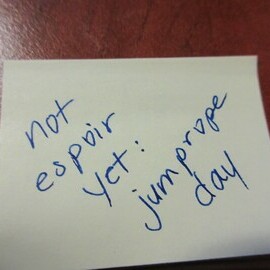 not
espoir
yet:
jumprope
day